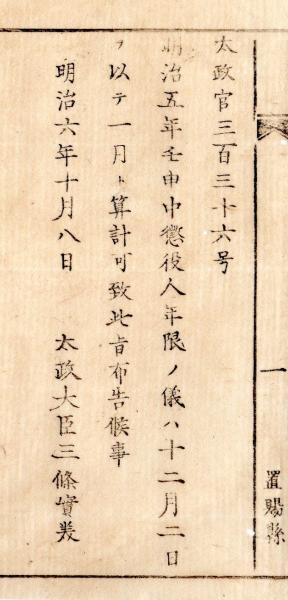 太政官三百三十六号
明治五年壬申中懲役人年限ノ儀ハ十二月二日
ヲ以テ一月ト算計可致此旨布告候事
明治六年十月八日　太政大臣三條實美
一
置賜縣